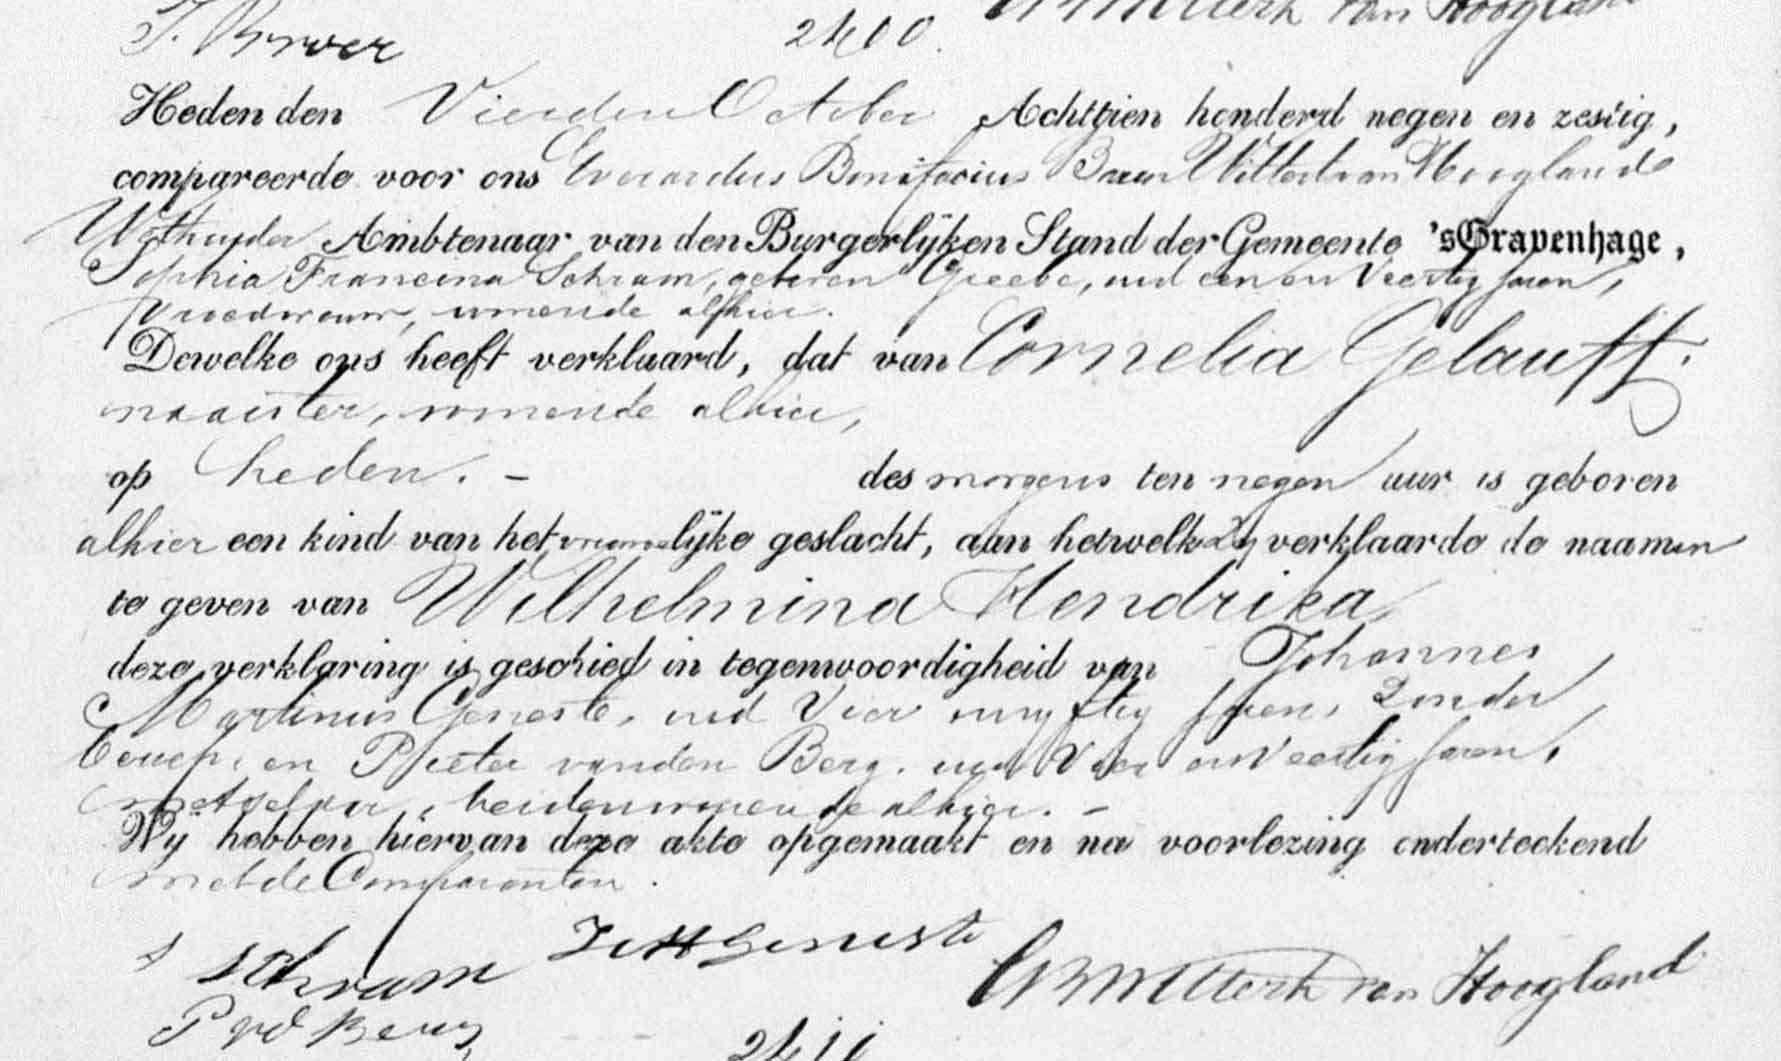 J. Brouwer
2400.
Wittert van Hoogland
Heden den Vierden October Achttien honderd negen en zestig,
compareerde voor ons Everardus Bonifacius Baron Wittert van Hooglande
Wethouder Ambtenaar van den Burgerlijken Stand der Gemeente 'sGravenhage,
Sophia Francina Schram, geboren Greebe, oud een en Veertig Jaren,
Vroedvrouw, wonende alhier.
Dewelke ons heeft verklaard, dat van Cornelia Gelauff,
naaister, wonende alhier,
op heden. - des morgens ten negen uur is geboren
alhier een kind van het vrouwelijke geslacht, aan hetwelk Zij verklaarde de naamen
te geven van Wilhelmina Hendrika
deze verklaring is geschied in tegenwoordigheid van Johannes
Martinus Geneste, oud Vier en vyftig Jaren, Zonder
beroep, en Pieter van den Berg, oud Vier en Veertig Jaren,
metselaar, beiden wonende alhier. -
Wij hebben hiervan deze akte opgemaakt en na voorlezing onderteekend
met de Comparanten.
S Schram
J M Geneste
EBWittert van Hoogland
P vd Berg
2411